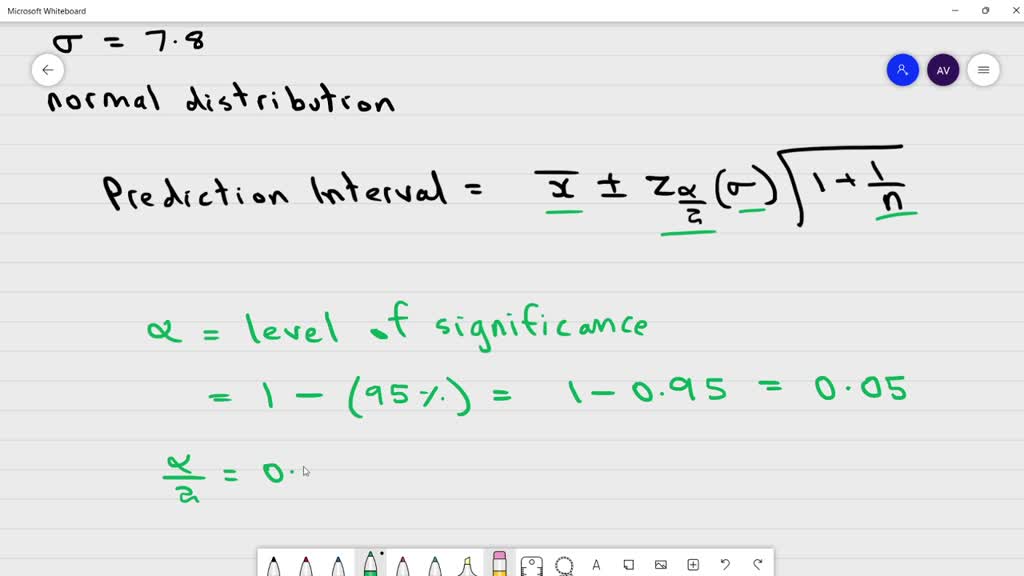 Microsoft Whiteboard
σ = 7.8
AV
normal distribution
Prediction Interval = x̄ ± z_{α/2} (σ) √(1 + 1/n)
α = level of significance
= 1 - (95%) = 1 - 0.95 = 0.05
α/2 = 0.
A